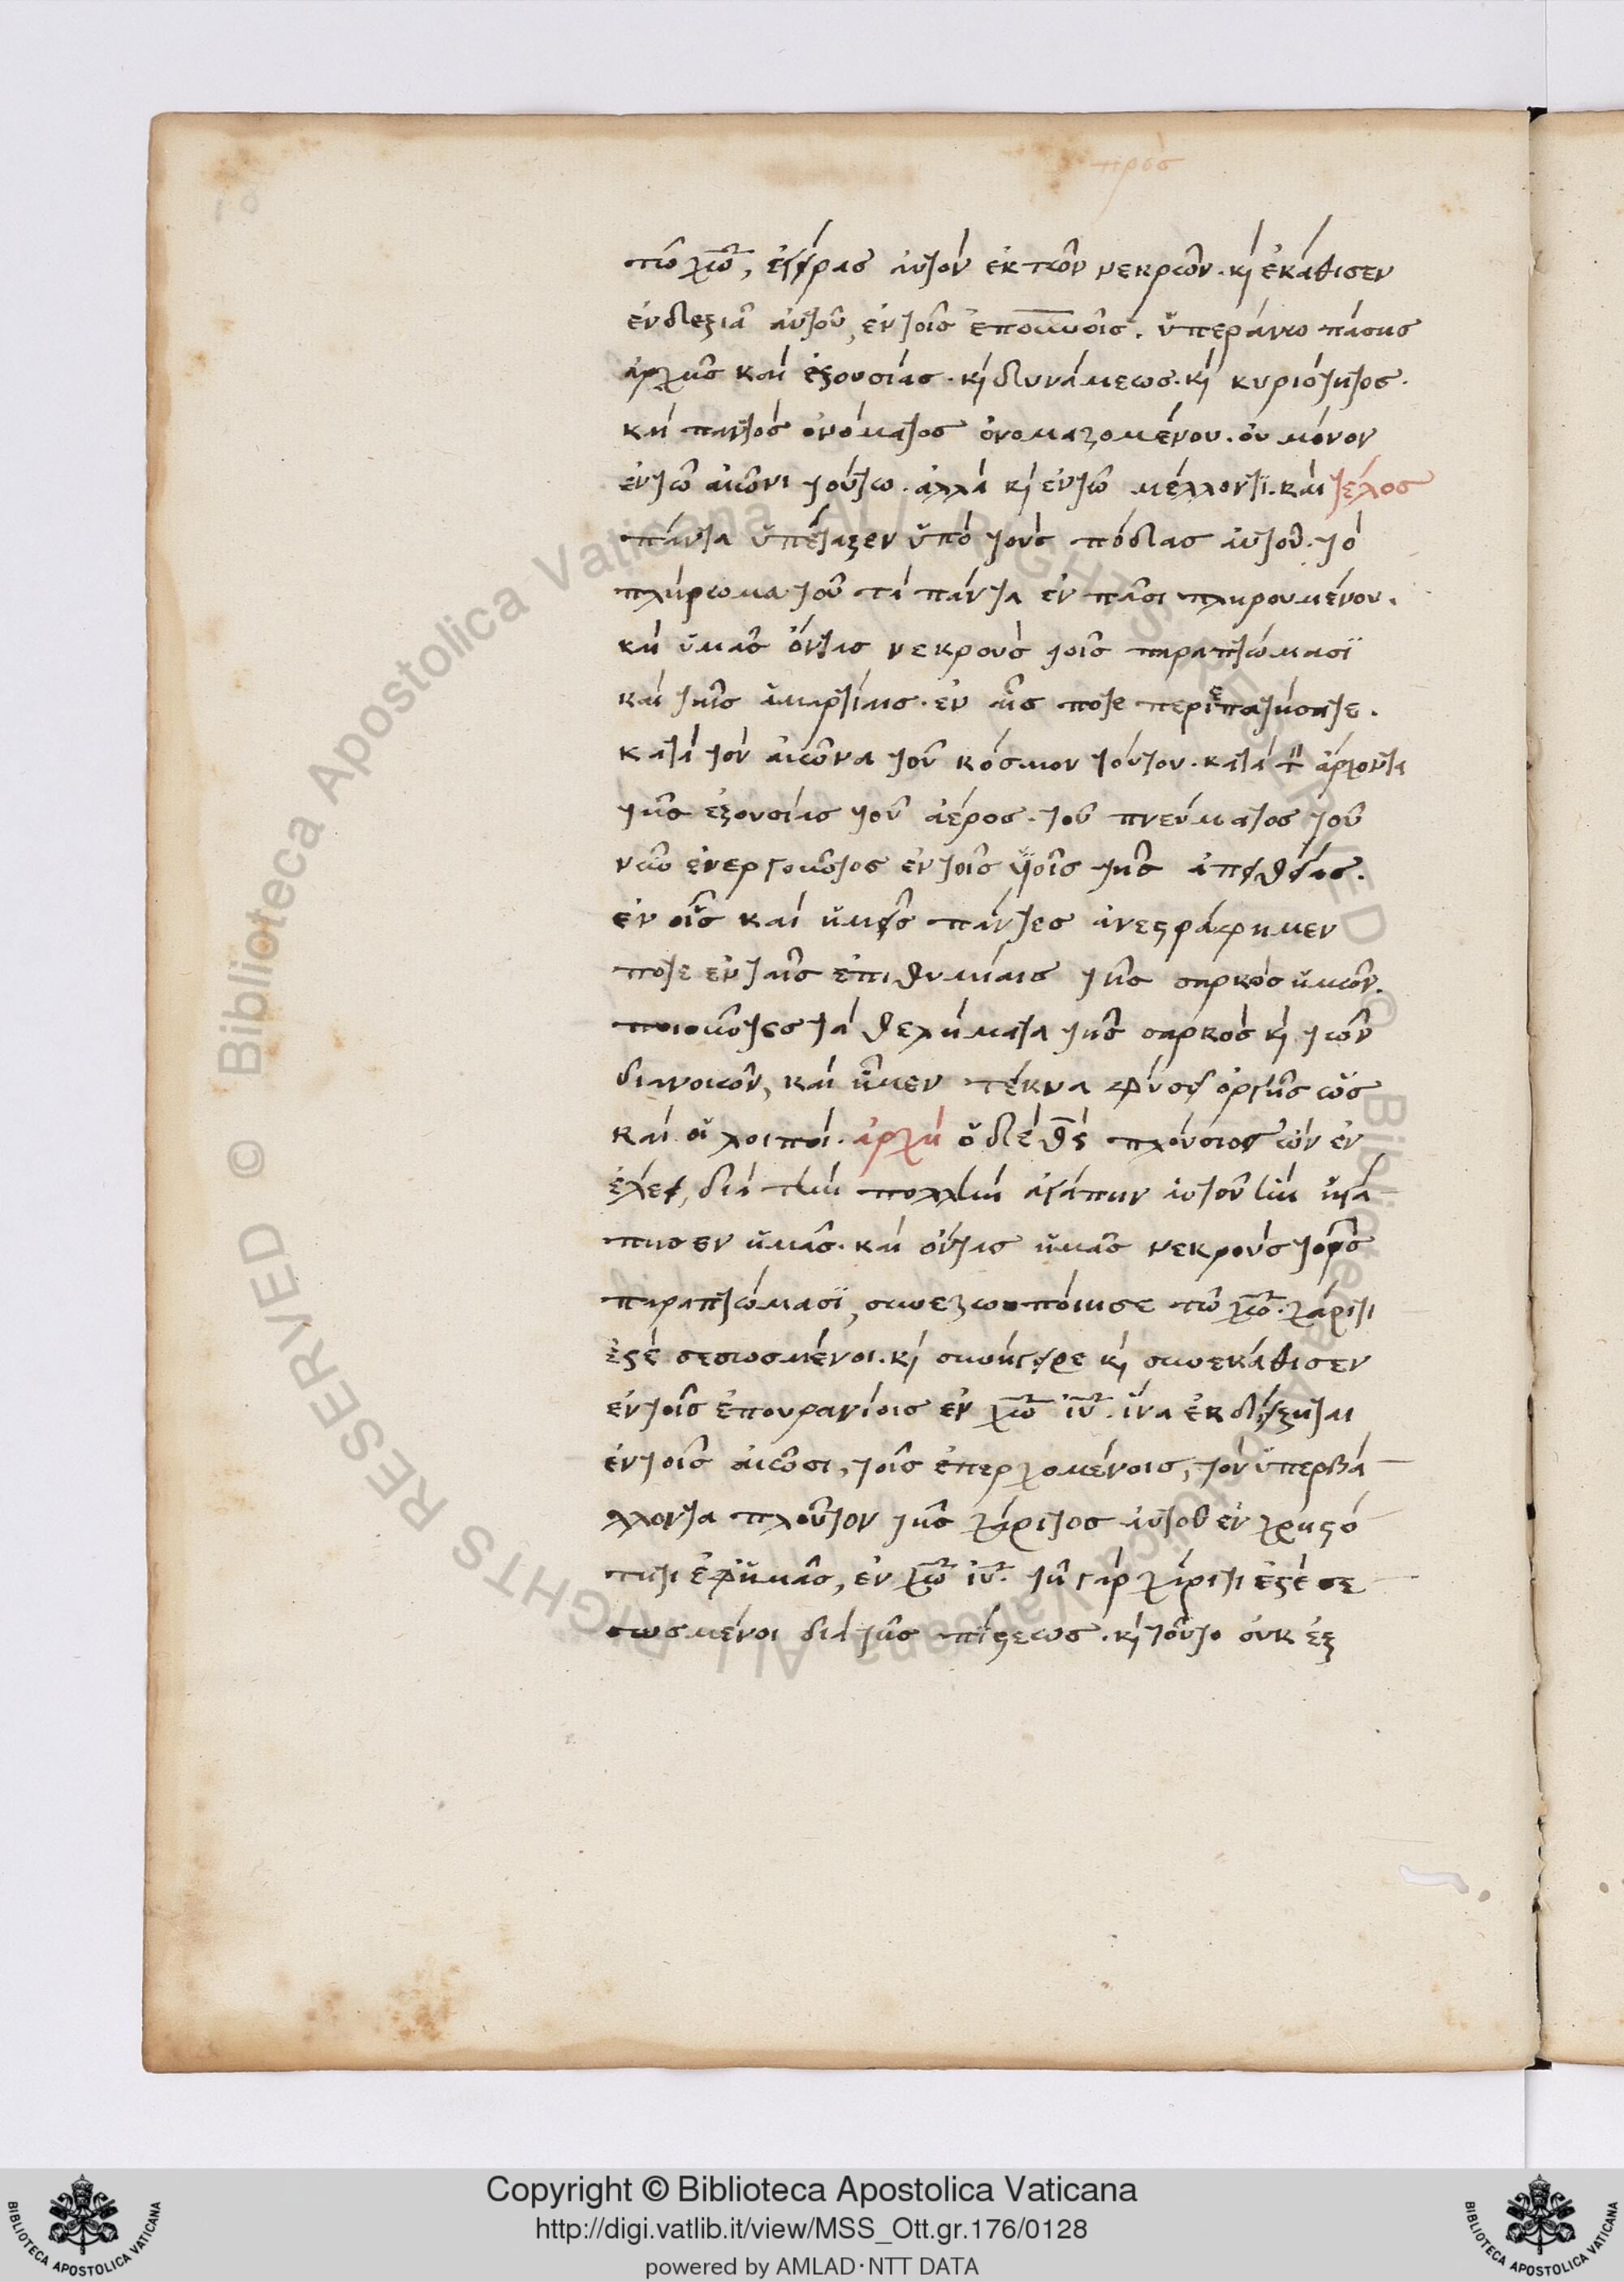 πρὸσ
τῶ χῶ, ἐγείρας ἀυτὸν ἐκ τῶν νεκρῶν. κὶ ἐκάθισεν
ἐν δεξιᾶ ἀυτοῦ, ἐν τοῖς ἐπουνοῖς. ὑπεράνω πάσης
ἀρχῆς καὶ ἐξουσίας. κὶ δυνάμεως. κὶ κυριότητος.
καὶ παντὸς ὀνόματος ὀνομαζομένου. οὐ μόνον
ἐν τῶ αἰῶνι τούτω. ἀλλὰ κὶ ἐν τῶ μέλλοντϊ. καὶ τέλος
πάντα ὑπέταξεν ὑπὸ τοὺς πόδας ἀυτοῦ. τὸ
πλήρωμα τοῦ τὰ πάντα ἐν πᾶσι πληρουμένου.
καὶ ὑμᾶς ὄντας νεκροὺς τοῖς παραπτώμασϊ
καὶ ταῖς ἁμαρτίαις. ἐν αἷς ποτε περιεπατήσατε.
κατὰ τὸν αἰῶνα τοῦ κόσμου τούτου. κατὰ τὸν ἄρχοντα
τῆς ἐξουσίας τοῦ ἀέρος. τοῦ πνεύματος τοῦ
νῦν ἐνεργοῦντος ἐν τοῖς ϋἱοῖς τῆς ἀπειθείας.
ἐν οἷς καὶ ἡμεῖς πάντες ἀνεστράφημεν
ποτε ἐν ταῖς ἐπιθυμίαις τῆς σαρκὸς ἡμῶν.
ποιοῦντες τὰ θελήματα τῆς σαρκὸς κὶ τῶν
διανοιῶν, καὶ ἦμεν τέκνα φύσει ὀργῆς ὡς
καὶ οἱ λοιποὶ. ἀρχὴ ὁ δὲ θς πλούσιος ὢν ἐν
ἐλέει, διὰ τὴν πολλὴν ἀγάπην ἀυτοῦ ἣν ἠγά
πησεν ἡμᾶς. καὶ ὄντας ἡμᾶς νεκροὺς τοῖς
παραπτώμασϊ, συνεζωοπόιησε τῶ χῶ. χάριτι
ἐστὲ σεσωσμένοι. κὶ συνήγειρε κὶ συνεκάθισεν
ἐν τοῖς ἐπουρανίοις ἐν χῶ ιῦ. ἵνα ἐκδείξηται
ἐν τοῖς αἰῶσι, τοῖς ἐπερχομένοις, τὸν ὑπερβά
λλοντα πλοῦτον τῆς χάριτος ἀυτοῦ ἐν χρηστό
τητι ἐφ' ἡμᾶς, ἐν χῶ ιῦ. τῆ γὰρ χάριτι ἐστὲ σε
σωσμένοι διὰ τῆς πίστεως. κὶ τοῦτο οὐκ ἐξ
Copyright © Biblioteca Apostolica Vaticana
http://digi.vatlib.it/view/MSS_Ott.gr.176/0128
powered by AMLAD·NTT DATA